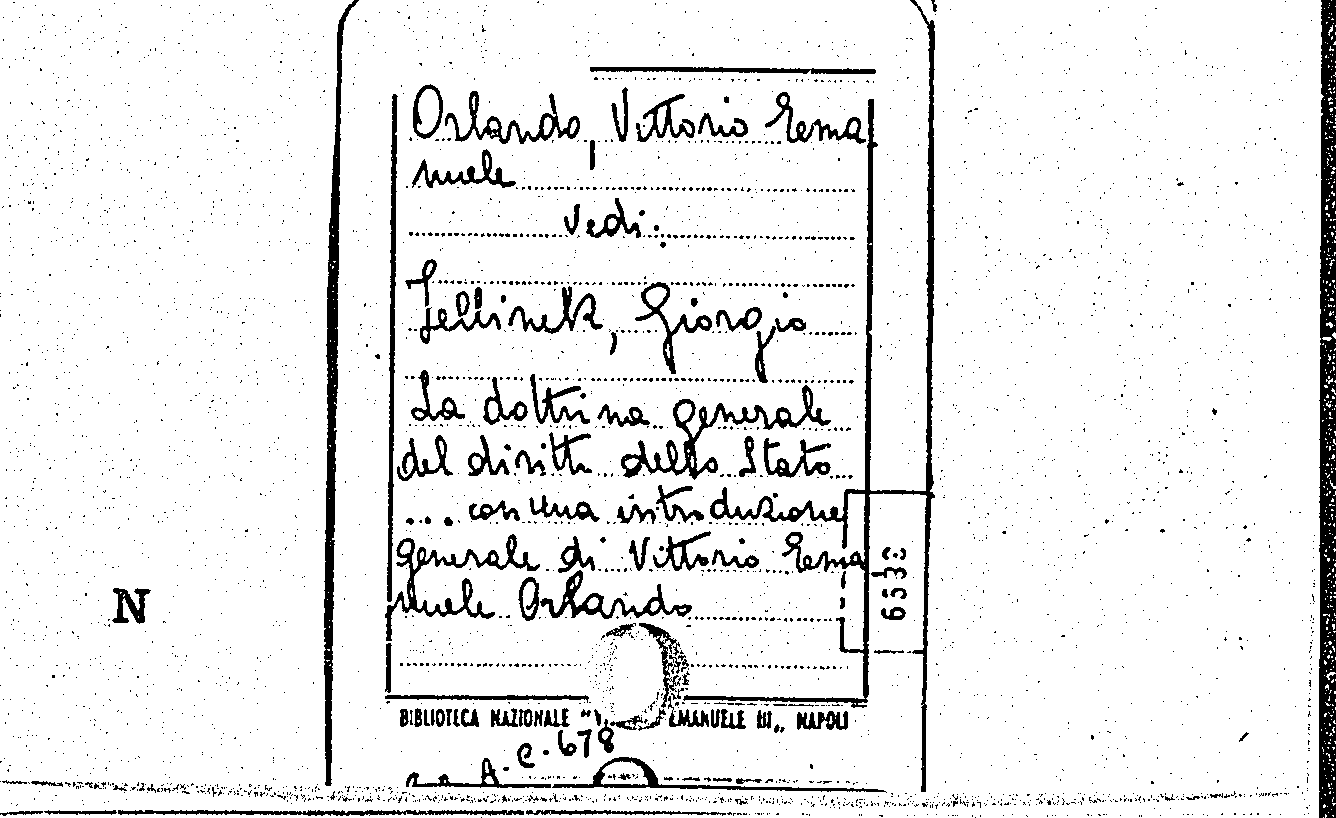 Orlando, Vittorio Ema
nuele
vedi:
Jellinek, Giorgio
La dottrina generale
del diritto dello Stato
... con una introduzione
generale di Vittorio Ema
nuele Orlando
6533
N
BIBLIOTECA NAZIONALE "V. EMANUELE III„ NAPOLI
A. C. 678